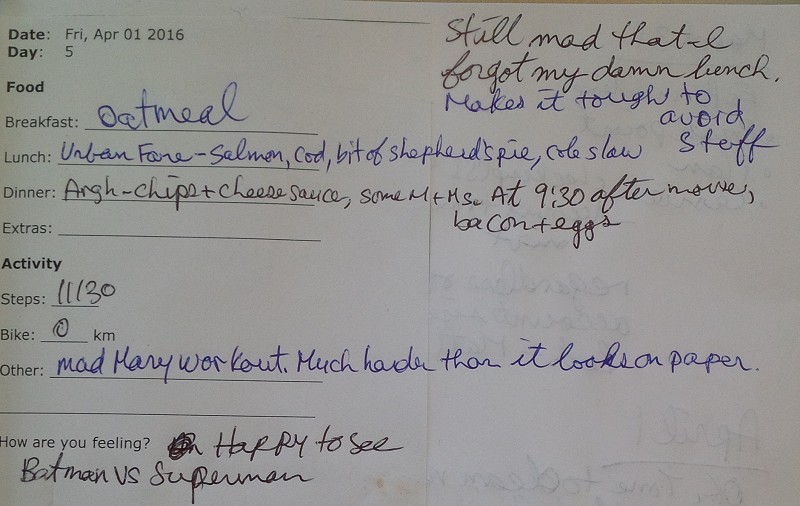 Date: Fri, Apr 01 2016
Day: 5
Still mad that I
forgot my damn lunch.
Makes it tough to
avoid
stuff
Food
Breakfast: oatmeal
Lunch: Urban Fare - Salmon, cod, bit of shepherd's pie, cole slaw
Dinner: Argh - chips + cheese sauce, some M+Ms. At 9:30 after movie,
bacon + eggs
Extras:
Activity
Steps: 11130
Bike: 0 km
Other: mad Mary workout. Much harder than it looks on paper.
How are you feeling? Happy to see
Batman vs Superman
April 1